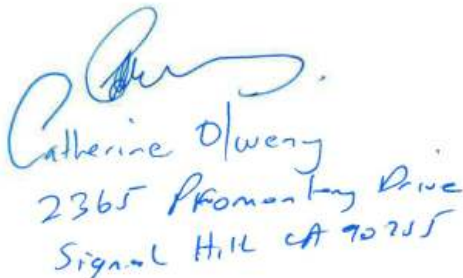 Catherine Olweny
2365 Promontory Drive
Signal Hill CA 90755